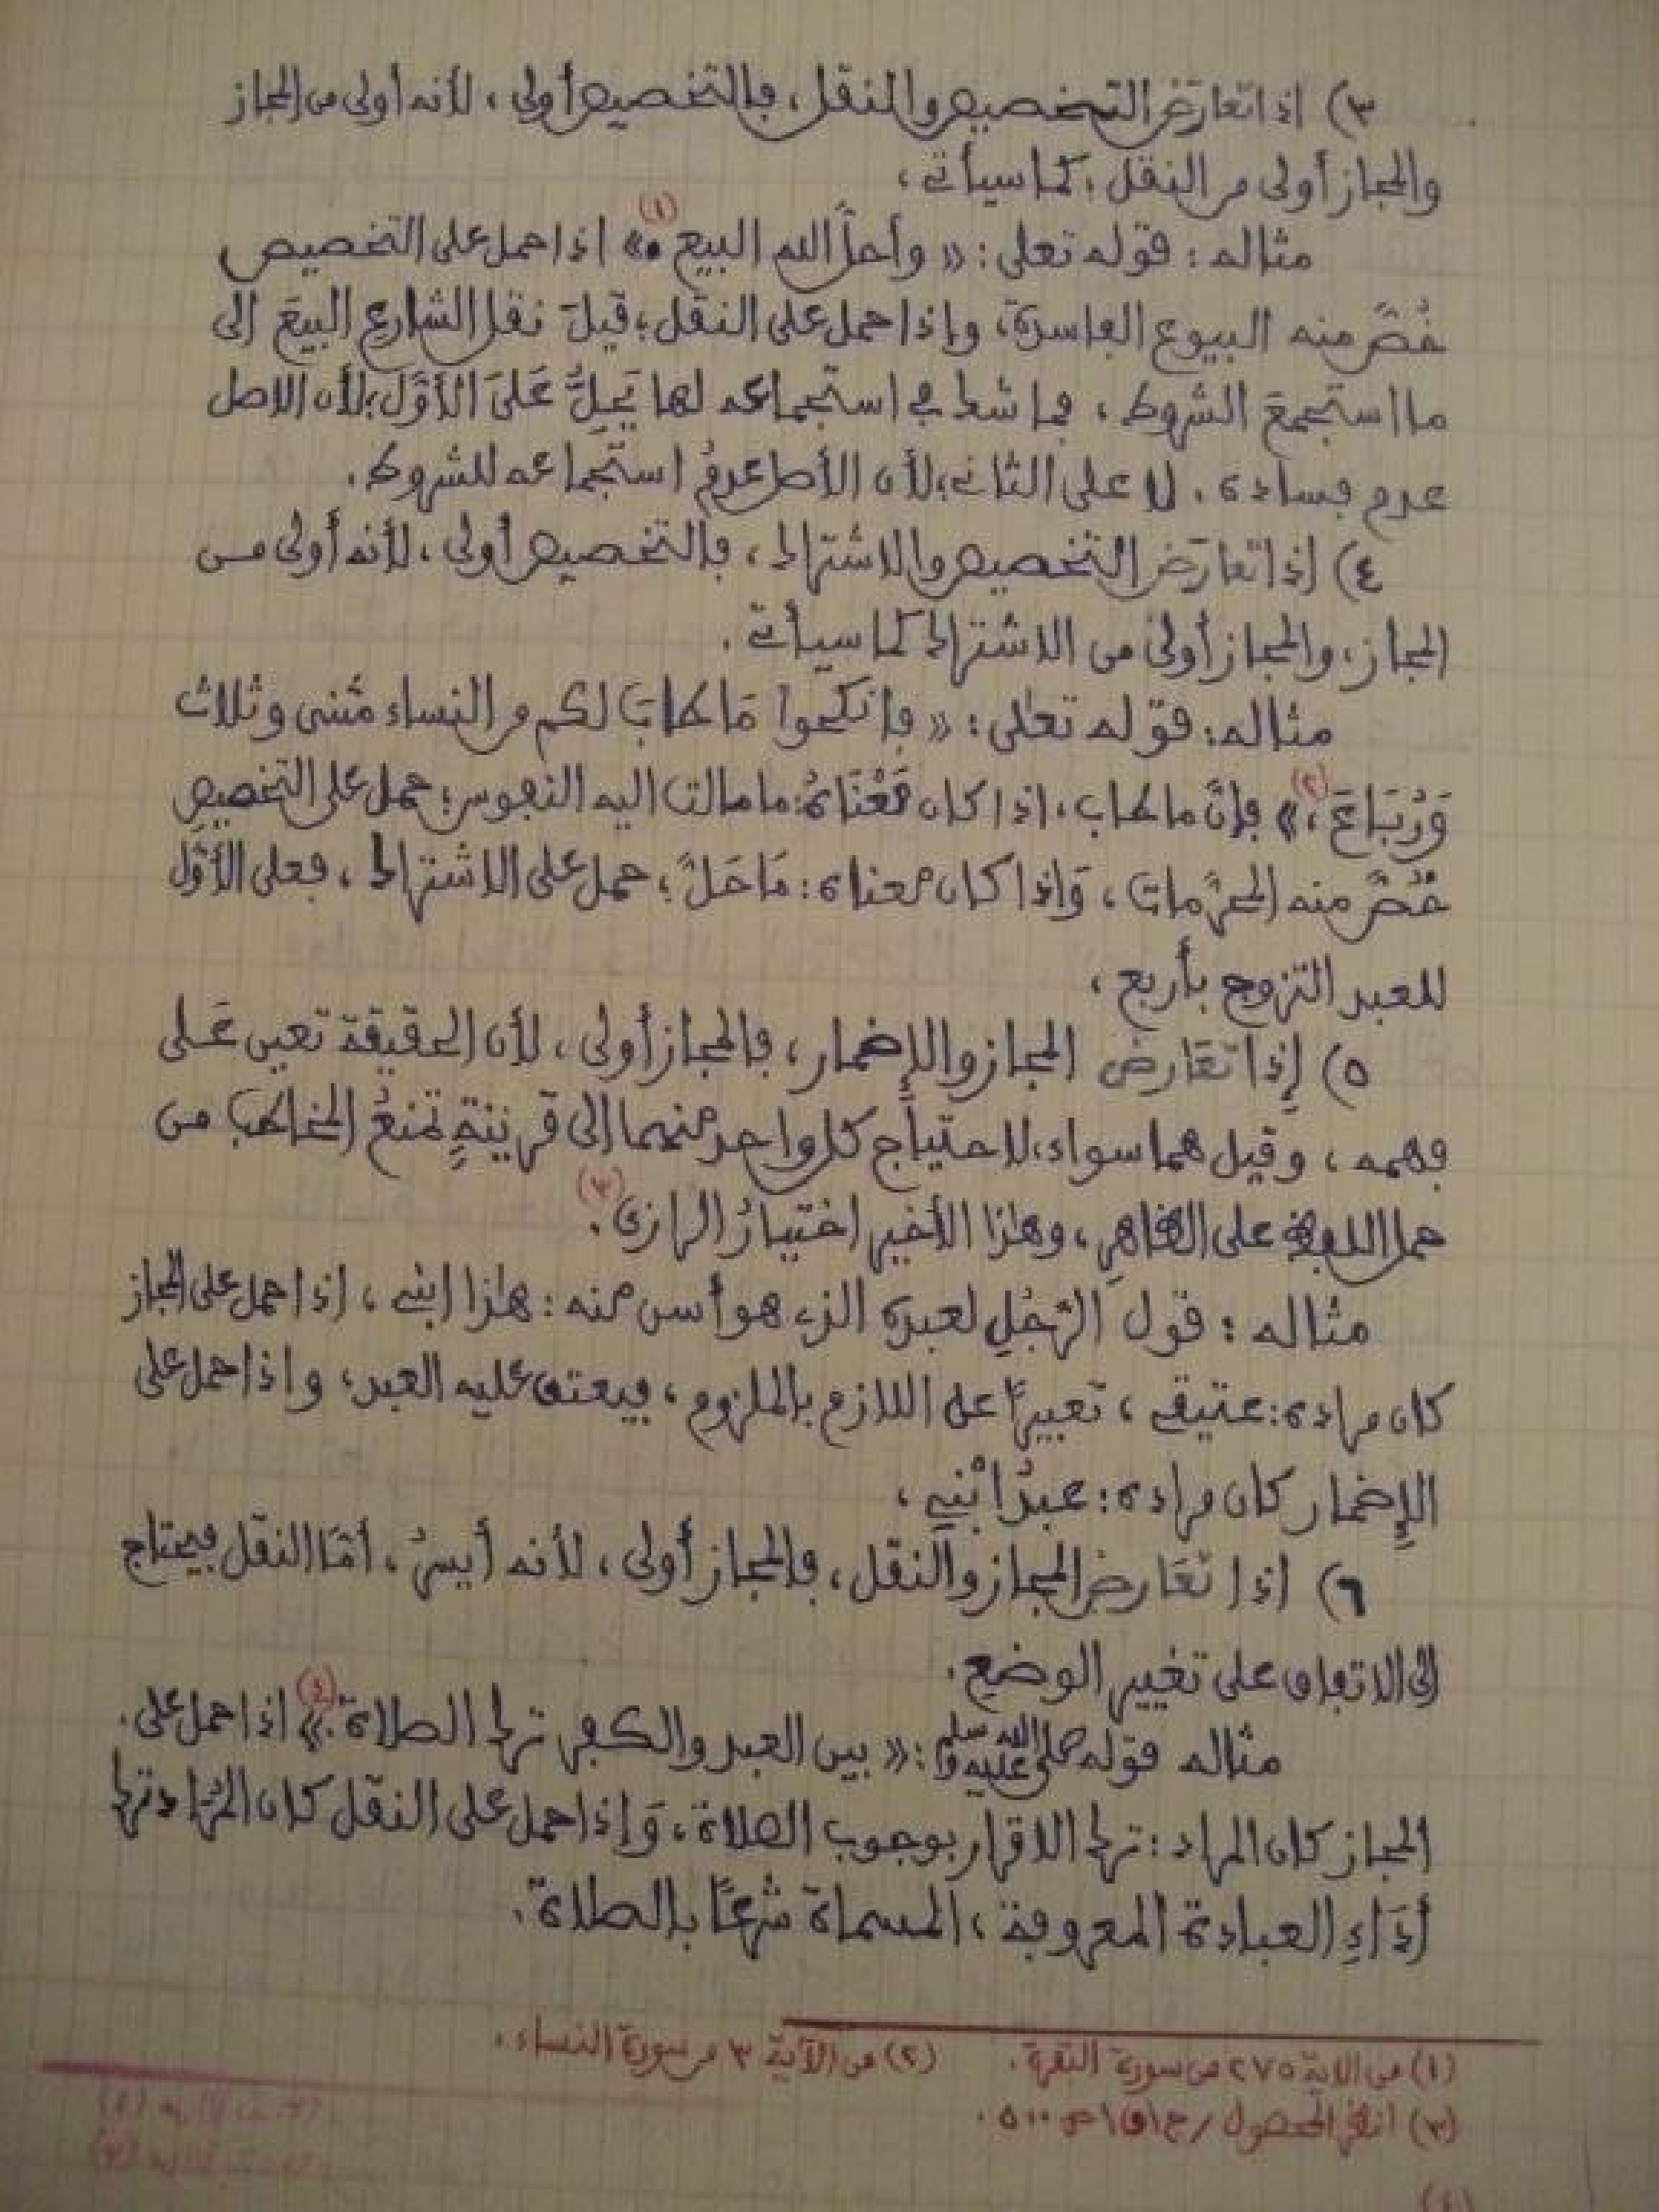 ٣) اذا تعارَض التخصيص والنقل، فالتخصيص أولى، لأنه أولى من المجاز
والمجاز أولى من النقل، كما سيأتي،
مثاله: قوله تعلى: «وأحلَّ الله البيع (١)» اذا حمل على التخصيص
خُصَّ منه البيوع الفاسدة، وإذا حمل على النقل؛ قيلَ نقل الشارع البيعَ الى
ما استجمعَ الشروط، فما شك في استجماعه لها يَحِلُّ عَلَى الأوَّلَ؛ لأن الاصل
عدم فساده. لا على الثاني؛ لأن الأصل عدمُ استجماعه للشروط.
٤) اذا تعارَض التخصيص والاشتراك، فالتخصيص أولى، لأنه أولى مـن
المجاز، والمجاز أولى من الاشتراك كما سيأتي.
مثاله: قوله تعلى: «فانكحوا مَا طابَ لكم من النساء مثنى وثلاث
وَرُبَاعَ، (٢)» فإنَّ ما طاب، اذا كان مَعْنَاهُ: ما مالت اليه النفوس؛ حمل على التخصيصِ
خُصَّ منه المحرَّمات، وَاذا كان معناه: مَا حَلَّ؛ حمل على الاشتراك، فعلى الأوَّل
للعبد التزوج بأربع،
٥) إذا تعَارض المجاز والإضمار، فالمجاز أولى، لأن الحقيقة تعين عَـلى
فهمه، وقيل هما سواء، لاحتياج كل واحد منهما الى قرينةٍ تمنعُ المخاطبَ من
حمل اللفظ على الظاهرِ، وهذا الأخير اختيارُ الرازي (٣).
مثاله: قول الرَّجُلِ لعبده الذي هو أسن منه: هذا ابني، اذا حمل على المجاز
كان مراده: عتيقي، تعبيرًا عن اللازم بالملزوم، فيعتق عليه العبد، واذا حمل على
الإضمار كان مراده: عبدُ ابْنِي،
٦) اذا تعَارض المجاز والنقل، فالمجاز أولى، لأنه أيسرُ، أمَّا النقل فيحتاج
الى الاتفاق على تغيير الوضع.
مثاله قوله صلى الله عليه وسلم: «بين العبد والكفر ترك الصلاة. (٤)» اذا حمل على
المجاز كان المراد: ترك الاقرار بوجوب الصلاة، وَإذا حمل على النقل كان المُراد ترك
أدَاءِ العبادة المعروفة، المسماة شرعًا بالصلاة.
(١) من الاية ٢٧٥ من سورة البقرة. (٢) من الآية ٣ من سورة النساء.
(٣) انظر المحصول / ج١ ق١ ص ٥٠٠.
(٤)